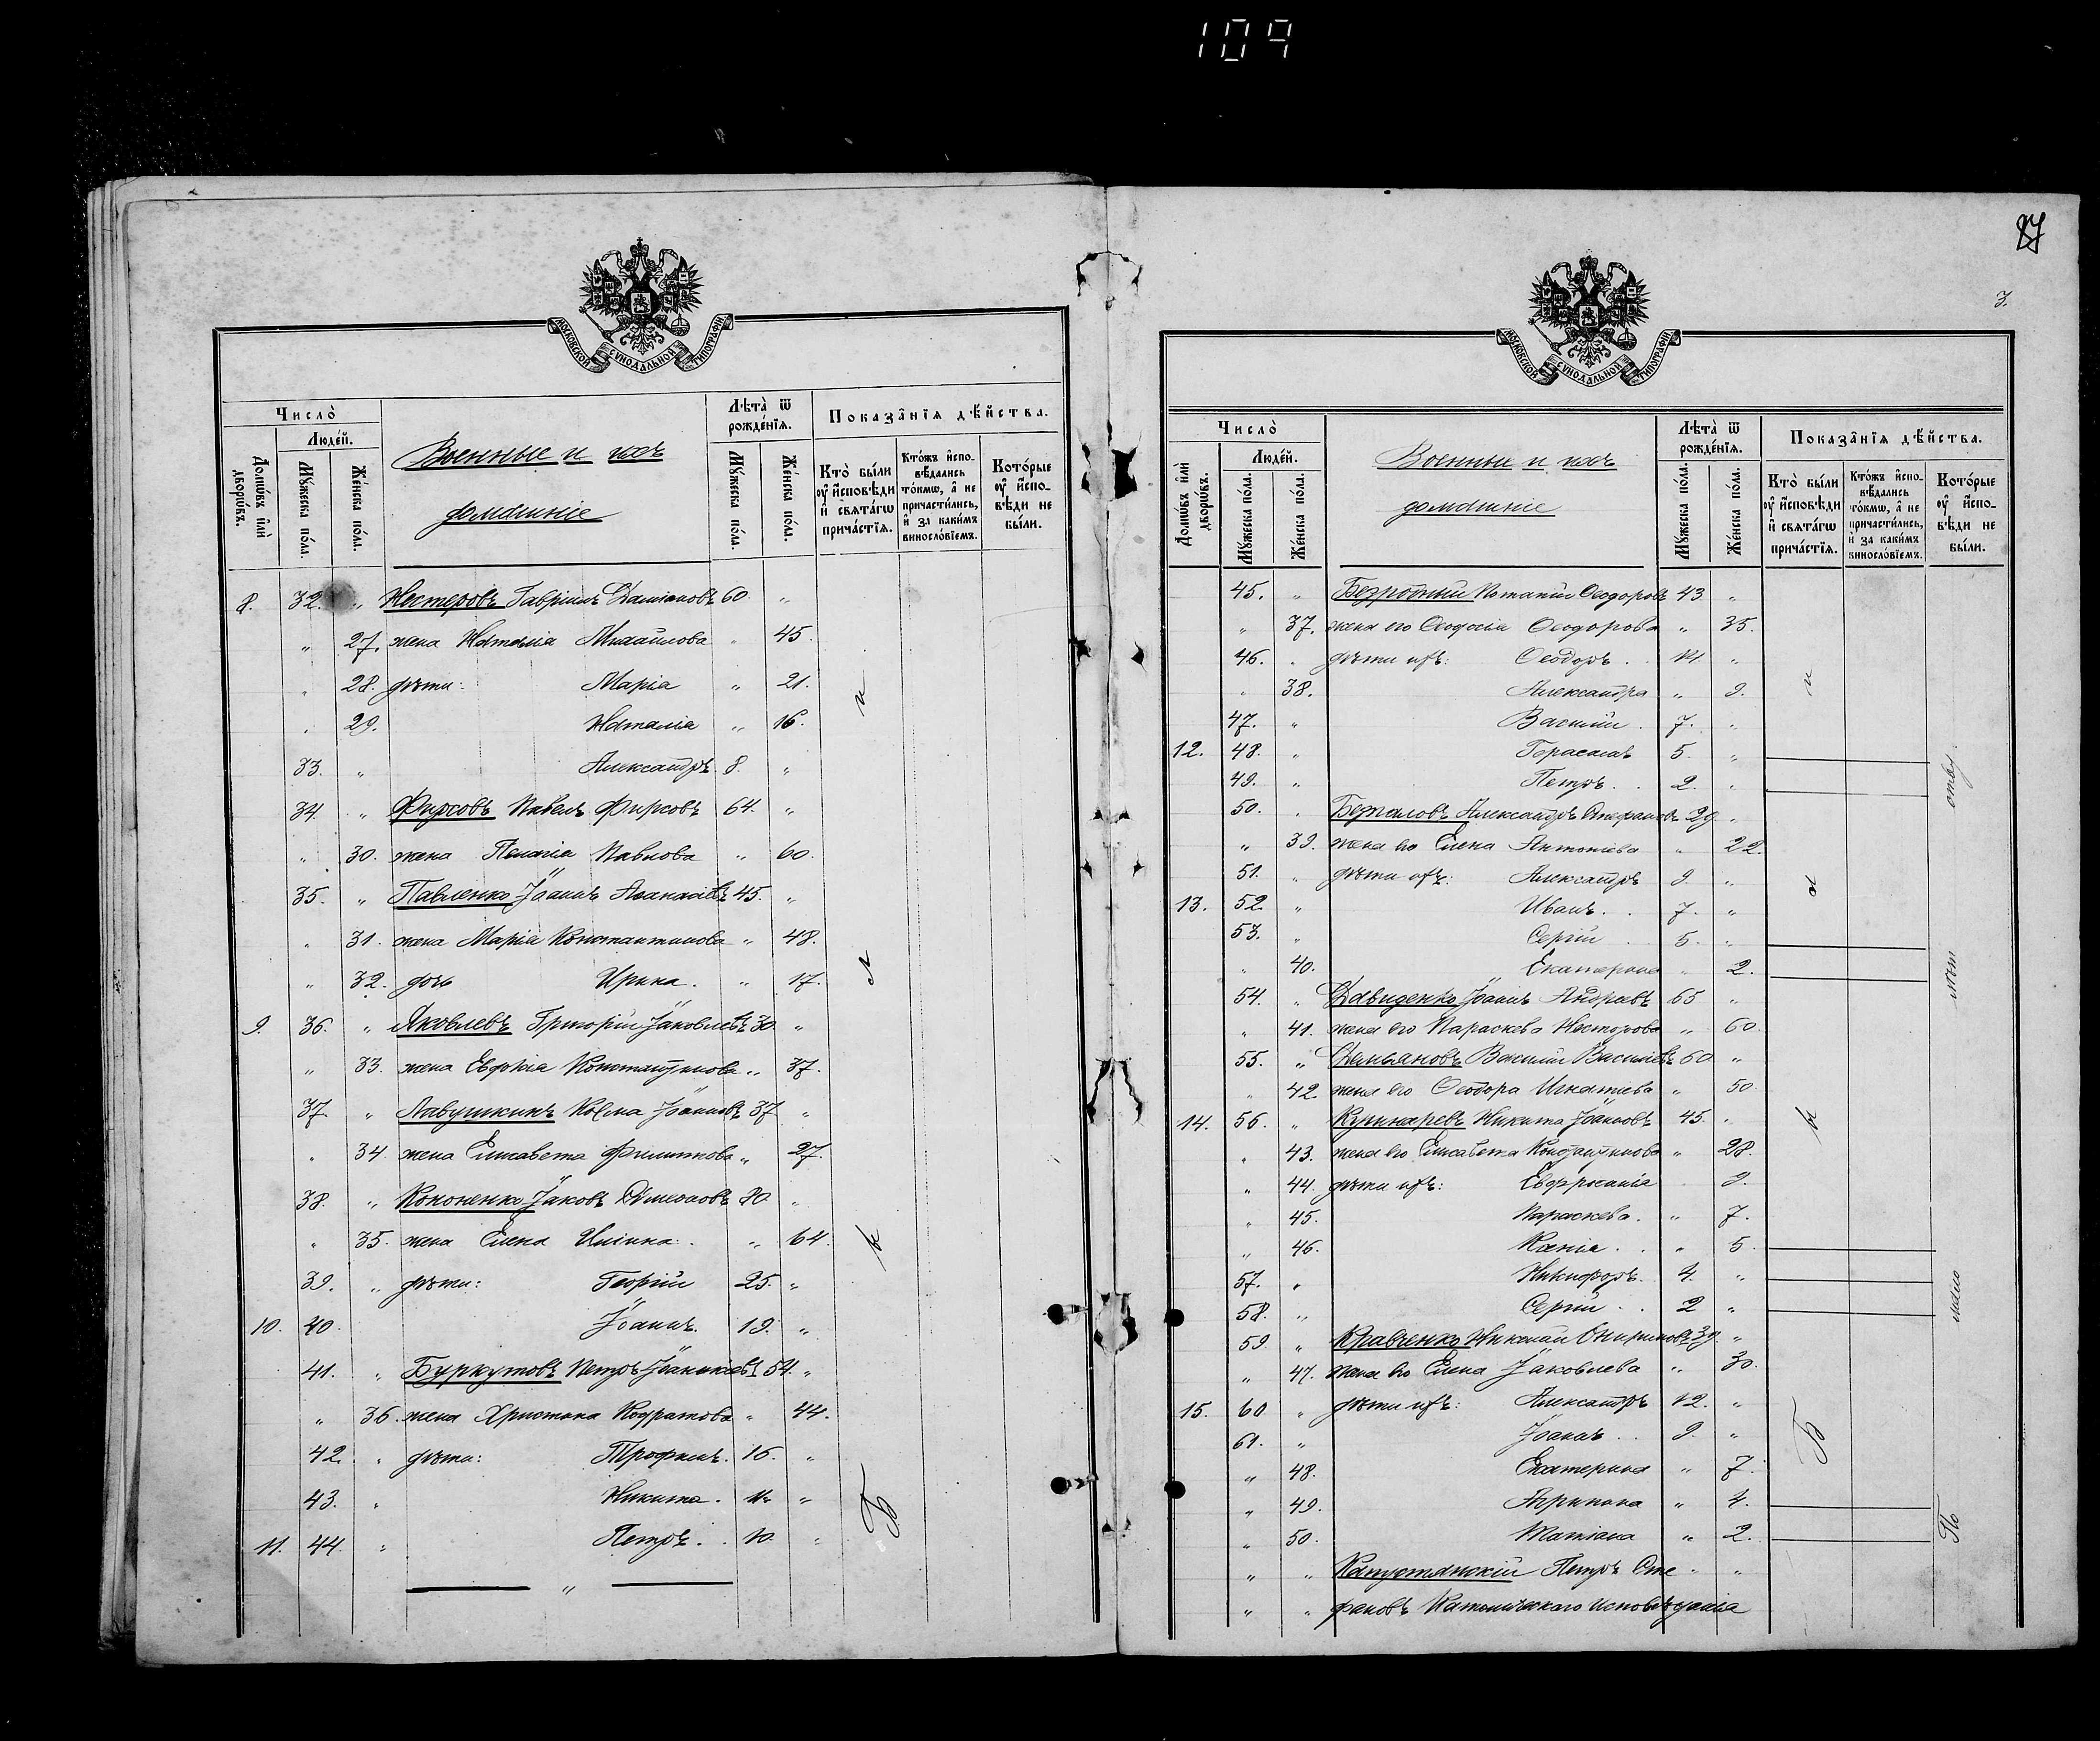 109
МОСКОВСКОЙ СѴНОДАЛЬНОЙ ТИПОГРАФІИ
Число̀
Люде́й.
Домѡ́въ и҆лѝ дворѡ́въ.
Мꙋ́жеска по́ла.
Же́нска по́ла.
Военные и ихъ
домашніе
Лѣта̀ ѿ рожде́нїѧ.
Мꙋ́жеска по́ла.
Же́нска по́ла.
Показа̑нїѧ дѣ́йства.
Кто̀ бы́ли ᲂу҆ и҆́сповѣди и҆ свѧта́гѡ прича́стїѧ.
Кто́жъ и҆спо-вѣ́дались то́кмѡ, а҆ не причасти́лись, и҆ за каки́мъ винослові́емъ.
Кото́рые ᲂу҆ и҆́спо-вѣди не бы́ли.
8. 32. " Нестеровъ Гавріилъ Даміановъ 60 "
" 27. жена Наталіа Михайлова " 45.
" 28. дѣти: Маріа " 21.
" 29. Наталіа " 16.
33. " Александръ 8. "
34. " Фирсовъ Павелъ Фирсовъ 64. "
" 30. жена Пелагіа Павлова " 60.
35. " Павленко Іоаннъ 45. "
" 31. жена Маріа Константинова " 48.
" 32. дочь Ирина. " 17.
9. 36. " Яковлевъ Григорій Іаковлевъ 30. "
" 33. жена Евфиміа Константинова " 37.
37. " Лавушкинъ Косма Іоанновъ 37 "
" 34. жена Елисавета Филиппова " 27.
38. " Кононенко Іаковъ 80. "
" 35. жена Елена Иліина. " 64.
39. " дѣти: Георгій 25. "
10. 40. Іоаннъ. 19. "
41. " Буркутовъ Петръ 54. "
" 36. жена Христина Кодратова " 44.
42. " дѣти: Трофимъ. 16. "
43. " Никита. "
11. 44. " Петръ. . 10. "
"
Были
87
3.
МОСКОВСКОЙ СѴНОДАЛЬНОЙ ТИПОГРАФІИ
Число̀
Люде́й.
Домѡ́въ и҆лѝ дворѡ́въ.
Мꙋ́жеска по́ла.
Же́нска по́ла.
Военные и ихъ
домашніе
Лѣта̀ ѿ рожде́нїѧ.
Мꙋ́жеска по́ла.
Же́нска по́ла.
Показа̑нїѧ дѣ́йства.
Кто̀ бы́ли ᲂу҆ и҆́сповѣди и҆ свѧта́гѡ прича́стїѧ.
Кто́жъ и҆спо-вѣ́дались то́кмѡ, а҆ не причасти́лись, и҆ за каки́мъ винослові́емъ.
Кото́рые ᲂу҆ и҆́спо-вѣди не бы́ли.
45. " Безродный Потапій Ѳеодоровъ 43 "
" 37. жена его Ѳеодосіа Ѳеодорова " 35.
46. " дѣти ихъ: Ѳеодоръ. . "
" 38. Александра " 9.
47. " Василій. 7. "
12. 48. " Герасимъ 5. "
49. " Петръ. . 2. "
50. " Александръ Стефановъ 29. "
" 39. жена его Елена Антоніева " 22.
51. " дѣти ихъ: Александръ 9. "
13. 52. " Иванъ. . 7. "
53. " Сергій 5. "
" 40. Екатерина " 2.
54. " Давиденко Іоаннъ Андреевъ 65 "
" 41. жена его Параскева Несторова " 60
55. " Демьяновъ Василій Василіевъ 60 "
" 42. жена его Ѳеодора Игнатіева " 50.
14. 56. " Кушнаревъ Никита Іоанновъ 45. "
" 43. жена его Елисавета Константинова " 28.
" 44. дѣти ихъ: Евфросиніа 9.
" 45. Параскева. " 7.
" 46. Ксеніа. . " 5.
57. " Никифоръ. 4. "
58. " Сергій. . 2 "
59. " Кравченко Николай 39. "
" 47. жена его Елена Іаковлева " 30.
15. 60 " дѣти ихъ: Александръ 12. "
61. " Іоаннъ. . 9. "
" 48. Екатерина " 7.
" 49. Агрипина " 4.
" 50. Татіана " 2.
" " Капустянскій Петръ Сте " "
" " фановъ Католическаго исповѣданіа
Были
По малолѣтству.